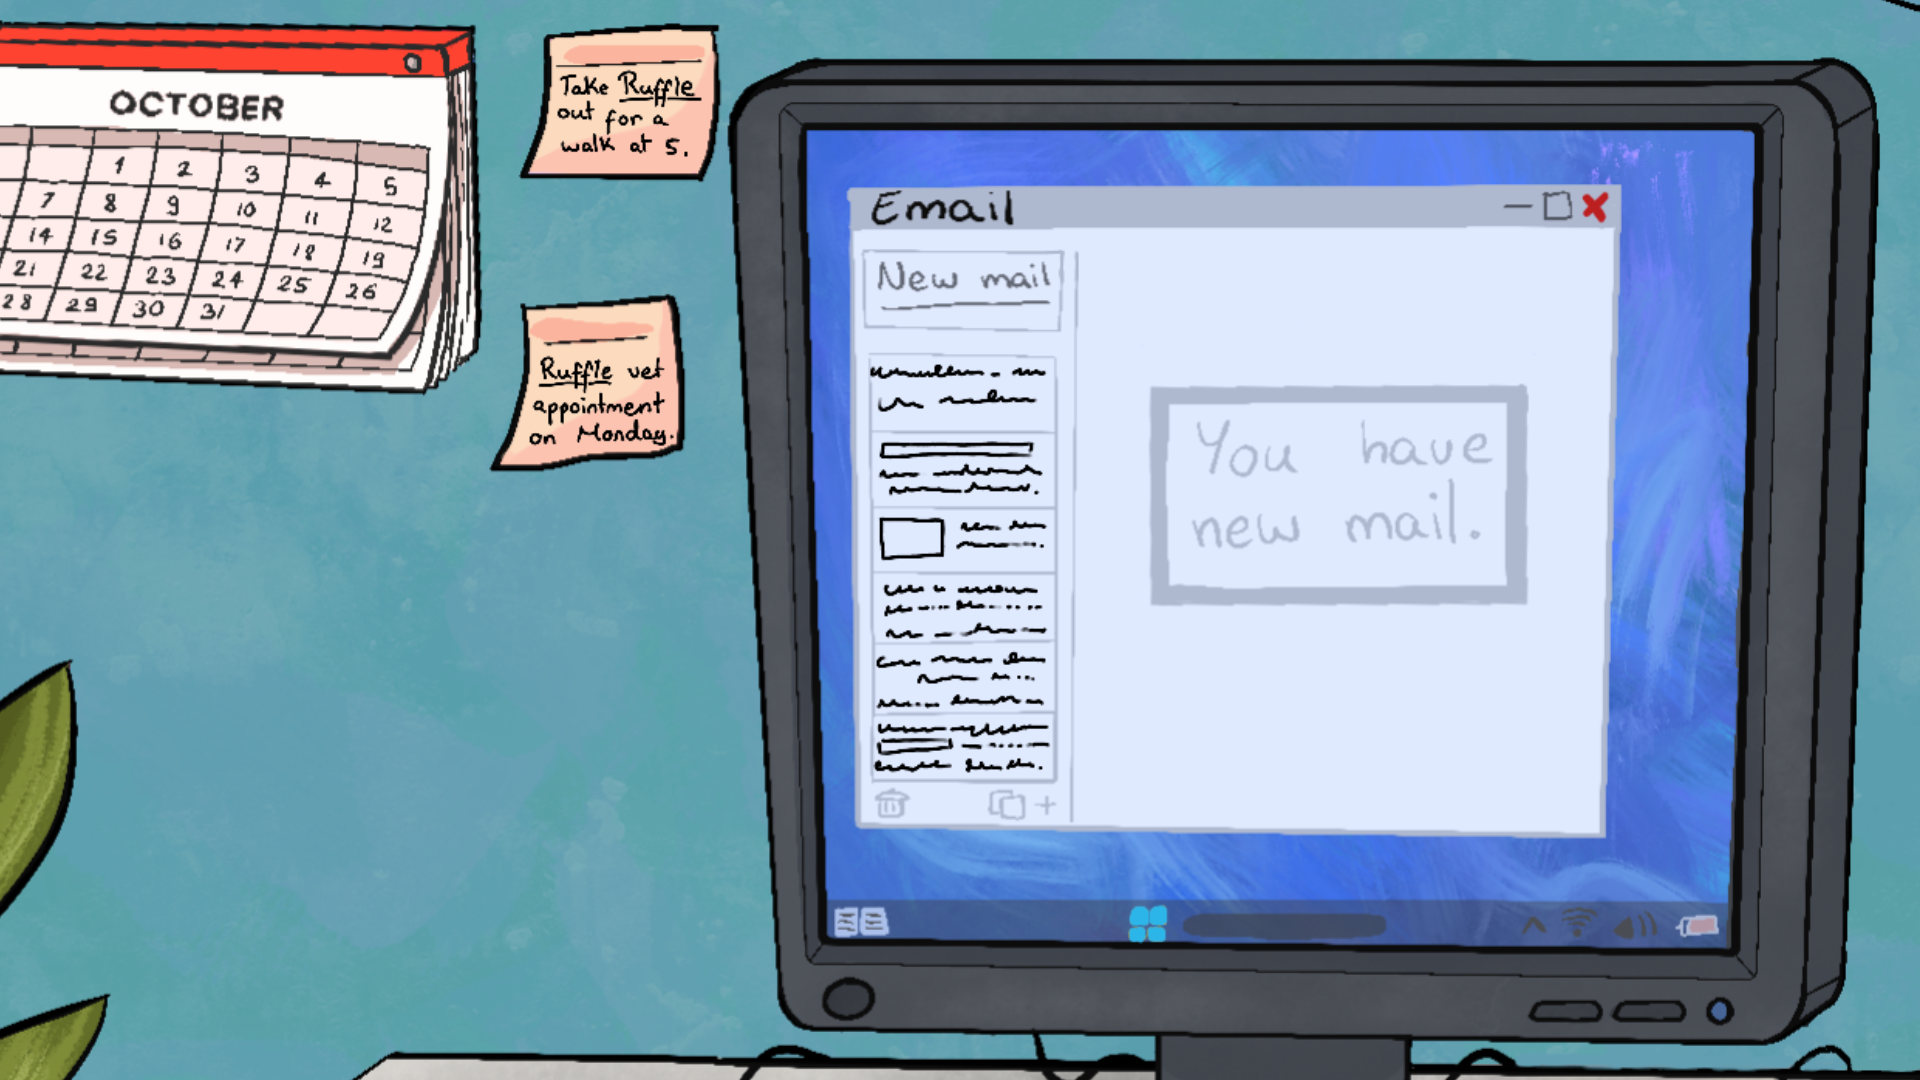 OCTOBER
1 2 3 4 5
7 8 9 10 11 12
14 15 16 17 18 19
21 22 23 24 25 26
28 29 30 31
Take Ruffle
out for a
walk at 5.
Ruffle vet
appointment
on Monday.
Email
New mail
You have
new mail.